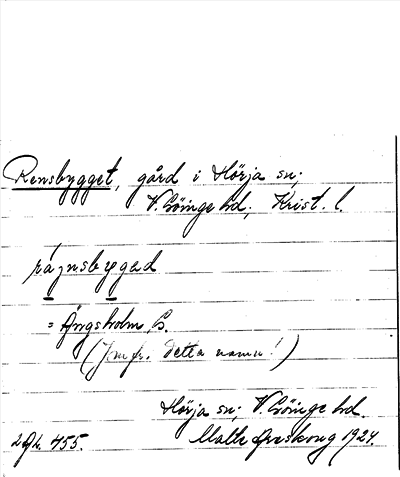 Rensbygget, gård i Hörja sn;
V. Göinge hd; Krist. l.
räynsbyged
= Ängsholm, B.
(Jmfr. detta namn!)
Hörja sn; V. Göinge hd.
455. Malte Areskoug 1924